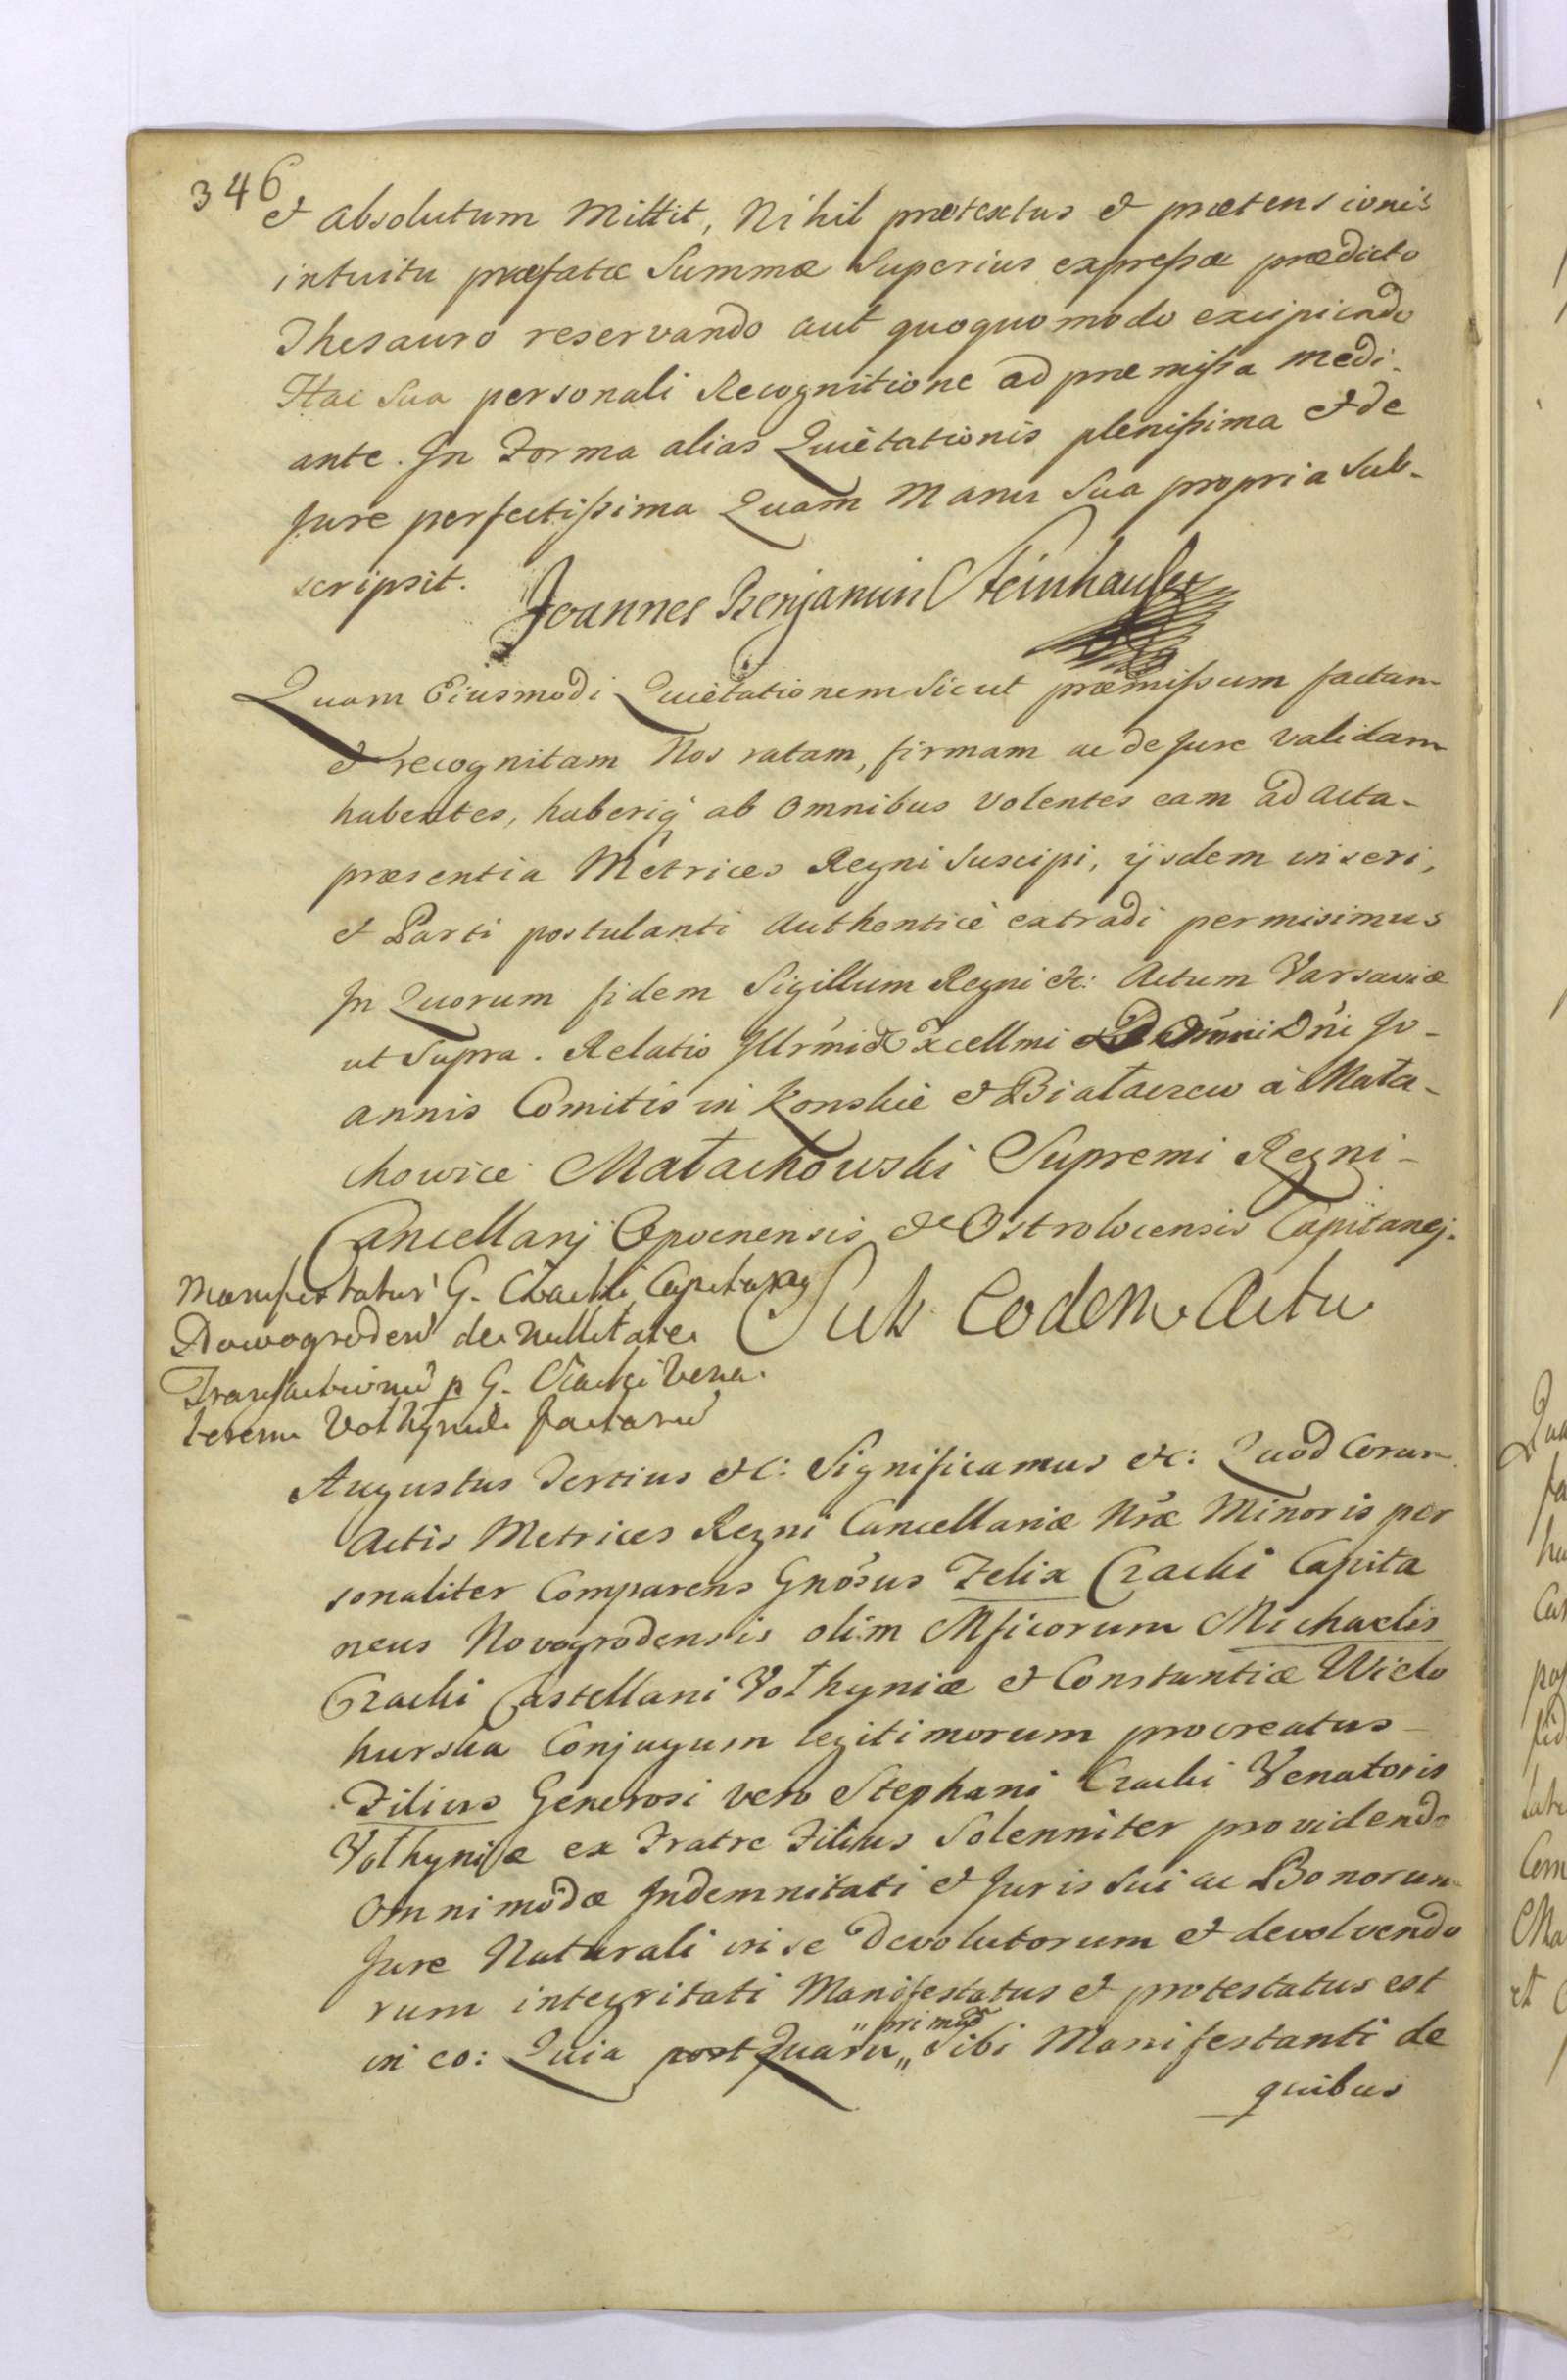 346
et absolutum Mittit, Nihil prætextus et prætensionis
intuitu præfatæ Summæ Superius expressæ prædicto
Thesauro reservando aut quoquomodo excipiendo
Hac Sua personali Recognitione ad præmissa medi-
ante. In Forma alias Quietationis plenissima et de
Jure perfectissima Quam Manu Sua propria Sub-
scripsit.
Joannes Benjamin Steinhauser
Quam Eiusmodi Quietationem Sicut præmissum factam
et recognitam Nos ratam, firmam ac de Jure Validam
habentes, haberiq́ ab Omnibus Volentes eam ad Acta-
præsentia Metrices Regni Suscipi, ijsdem inseri,
et Parti postulanti Authenticè extradi permisimus
In Quorum fidem Sigillum Regni etc: Actum Varsaviæ
ut Supra. Relatio Illrm̃i et Excellmi Dñi Jo-
annis Comitis in Konskie et Białaczew à Mała-
chowice Małachowski Supremi Regni-
Cancellarij Opocnensis et Ostrolocensis Capitanej.
Manifestatur G. Czacki Capitaney
Nowogroden de Nullitate
Transactionũ p G. Czacki Vena-
torem Vołhyniæ factarũ
Sub Eodem Actu
Augustus Tertius etc: Significamus etc: Quod Coram
Actis Metrices Regni Cancellariæ Nr̃æ Minoris per
sonaliter Comparens Gnõsus Felix Czacki Capita
neus Novogrodensis olim Mficorum Michaelis
Czacki Castellani Vołhyniæ et Constantiæ Wielo
hurska Conjugum legitimorum procreatus
Filius Generosi vero Stephani Czacki Venatoris
Vołhyniæ ex Fratre Filius Solenniter providendo
Omnimodæ Indemnitati et Juris Sui ac Bonorum
Jure Naturali in se Devolutorum et devolvendo
rum integritati Manifestatus et protestatus est
in eo: Quia postquam „ Sibi Manifestanti de
quibus